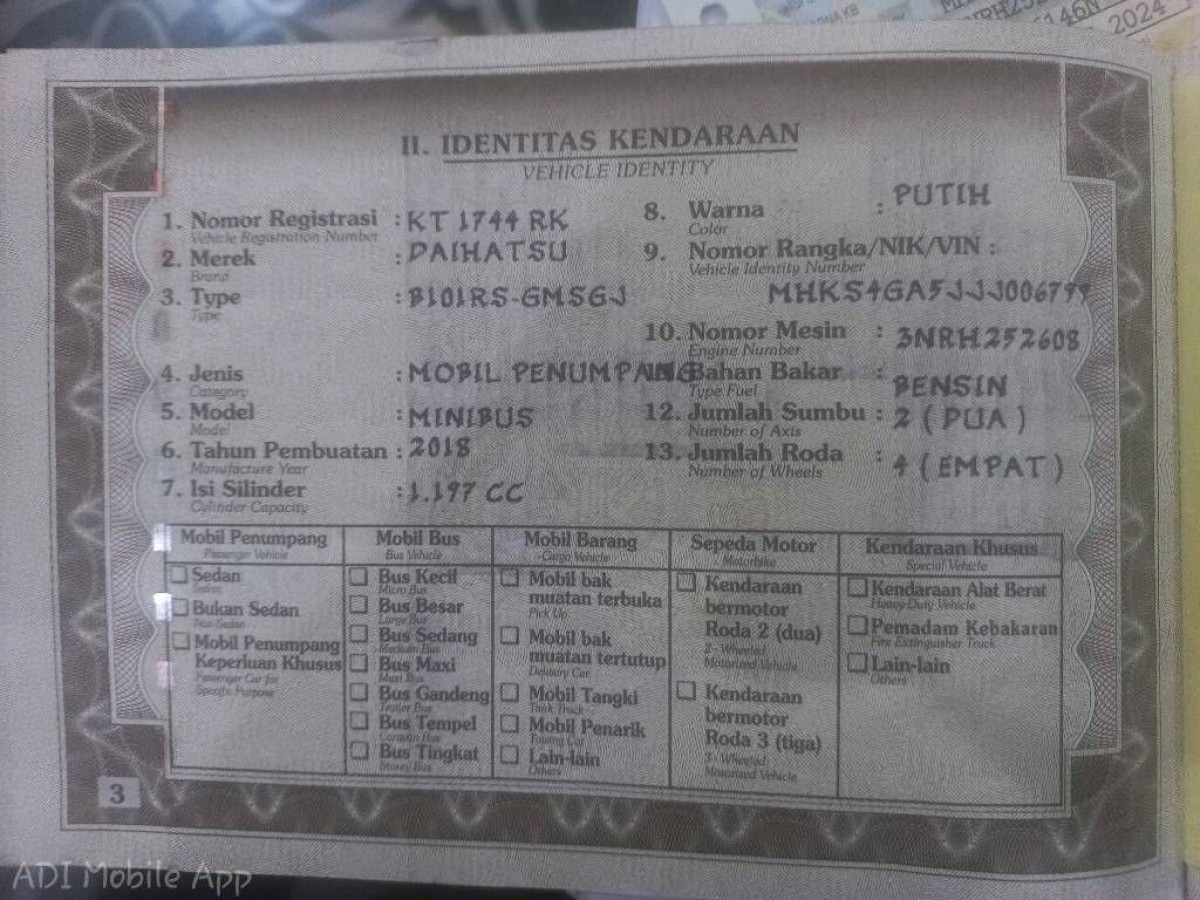 2024
146N
II. IDENTITAS KENDARAAN
VEHICLE IDENTITY
1. Nomor Registrasi : KT 1744 RK
Vehicle Registration Number
2. Merek : DAIHATSU
Brand
3. Type : B101RS-GMSGJ
Type
4. Jenis : MOBIL PENUMPANG
Category
5. Model : MINIBUS
Model
6. Tahun Pembuatan : 2018
Manufacture Year
7. Isi Silinder : 1.197 CC
Cylinder Capacity
8. Warna : PUTIH
Color
9. Nomor Rangka/NIK/VIN :
Vehicle Identity Number
MHKS4GA5JJJ006799
10. Nomor Mesin : 3NRH252608
Engine Number
Bahan Bakar : BENSIN
Type Fuel
12. Jumlah Sumbu : 2 ( DUA )
Number of Axis
13. Jumlah Roda : 4 ( EMPAT )
Number of Wheels
Mobil Penumpang
Passenger Vehicle
Sedan
Sedan
Bukan Sedan
Non-Sedan
Mobil Penumpang
Keperluan Khusus
Passenger Car for
Specific Purpose
Mobil Bus
Bus Vehicle
Bus Kecil
Micro Bus
Bus Besar
Large Bus
Bus Sedang
Medium Bus
Bus Maxi
Maxi Bus
Bus Gandeng
Trailer Bus
Bus Tempel
Caravan Bus
Bus Tingkat
Mobil Barang
Cargo Vehicle
Mobil bak
muatan terbuka
Pick Up
Mobil bak
muatan tertutup
Delivery Car
Mobil Tangki
Tank Truck
Mobil Penarik
Towing Car
Lain-lain
Others
Sepeda Motor
Motorbike
Kendaraan
bermotor
Roda 2 (dua)
2 - Wheeled
Motorized Vehicle
Kendaraan
bermotor
Roda 3 (tiga)
3 - Wheeled
Motorized Vehicle
Kendaraan Khusus
Special Vehicle
Kendaraan Alat Berat
Heavy-Duty Vehicle
Pemadam Kebakaran
Fire Extinguisher Truck
Lain-lain
Others
3
ADI Mobile App